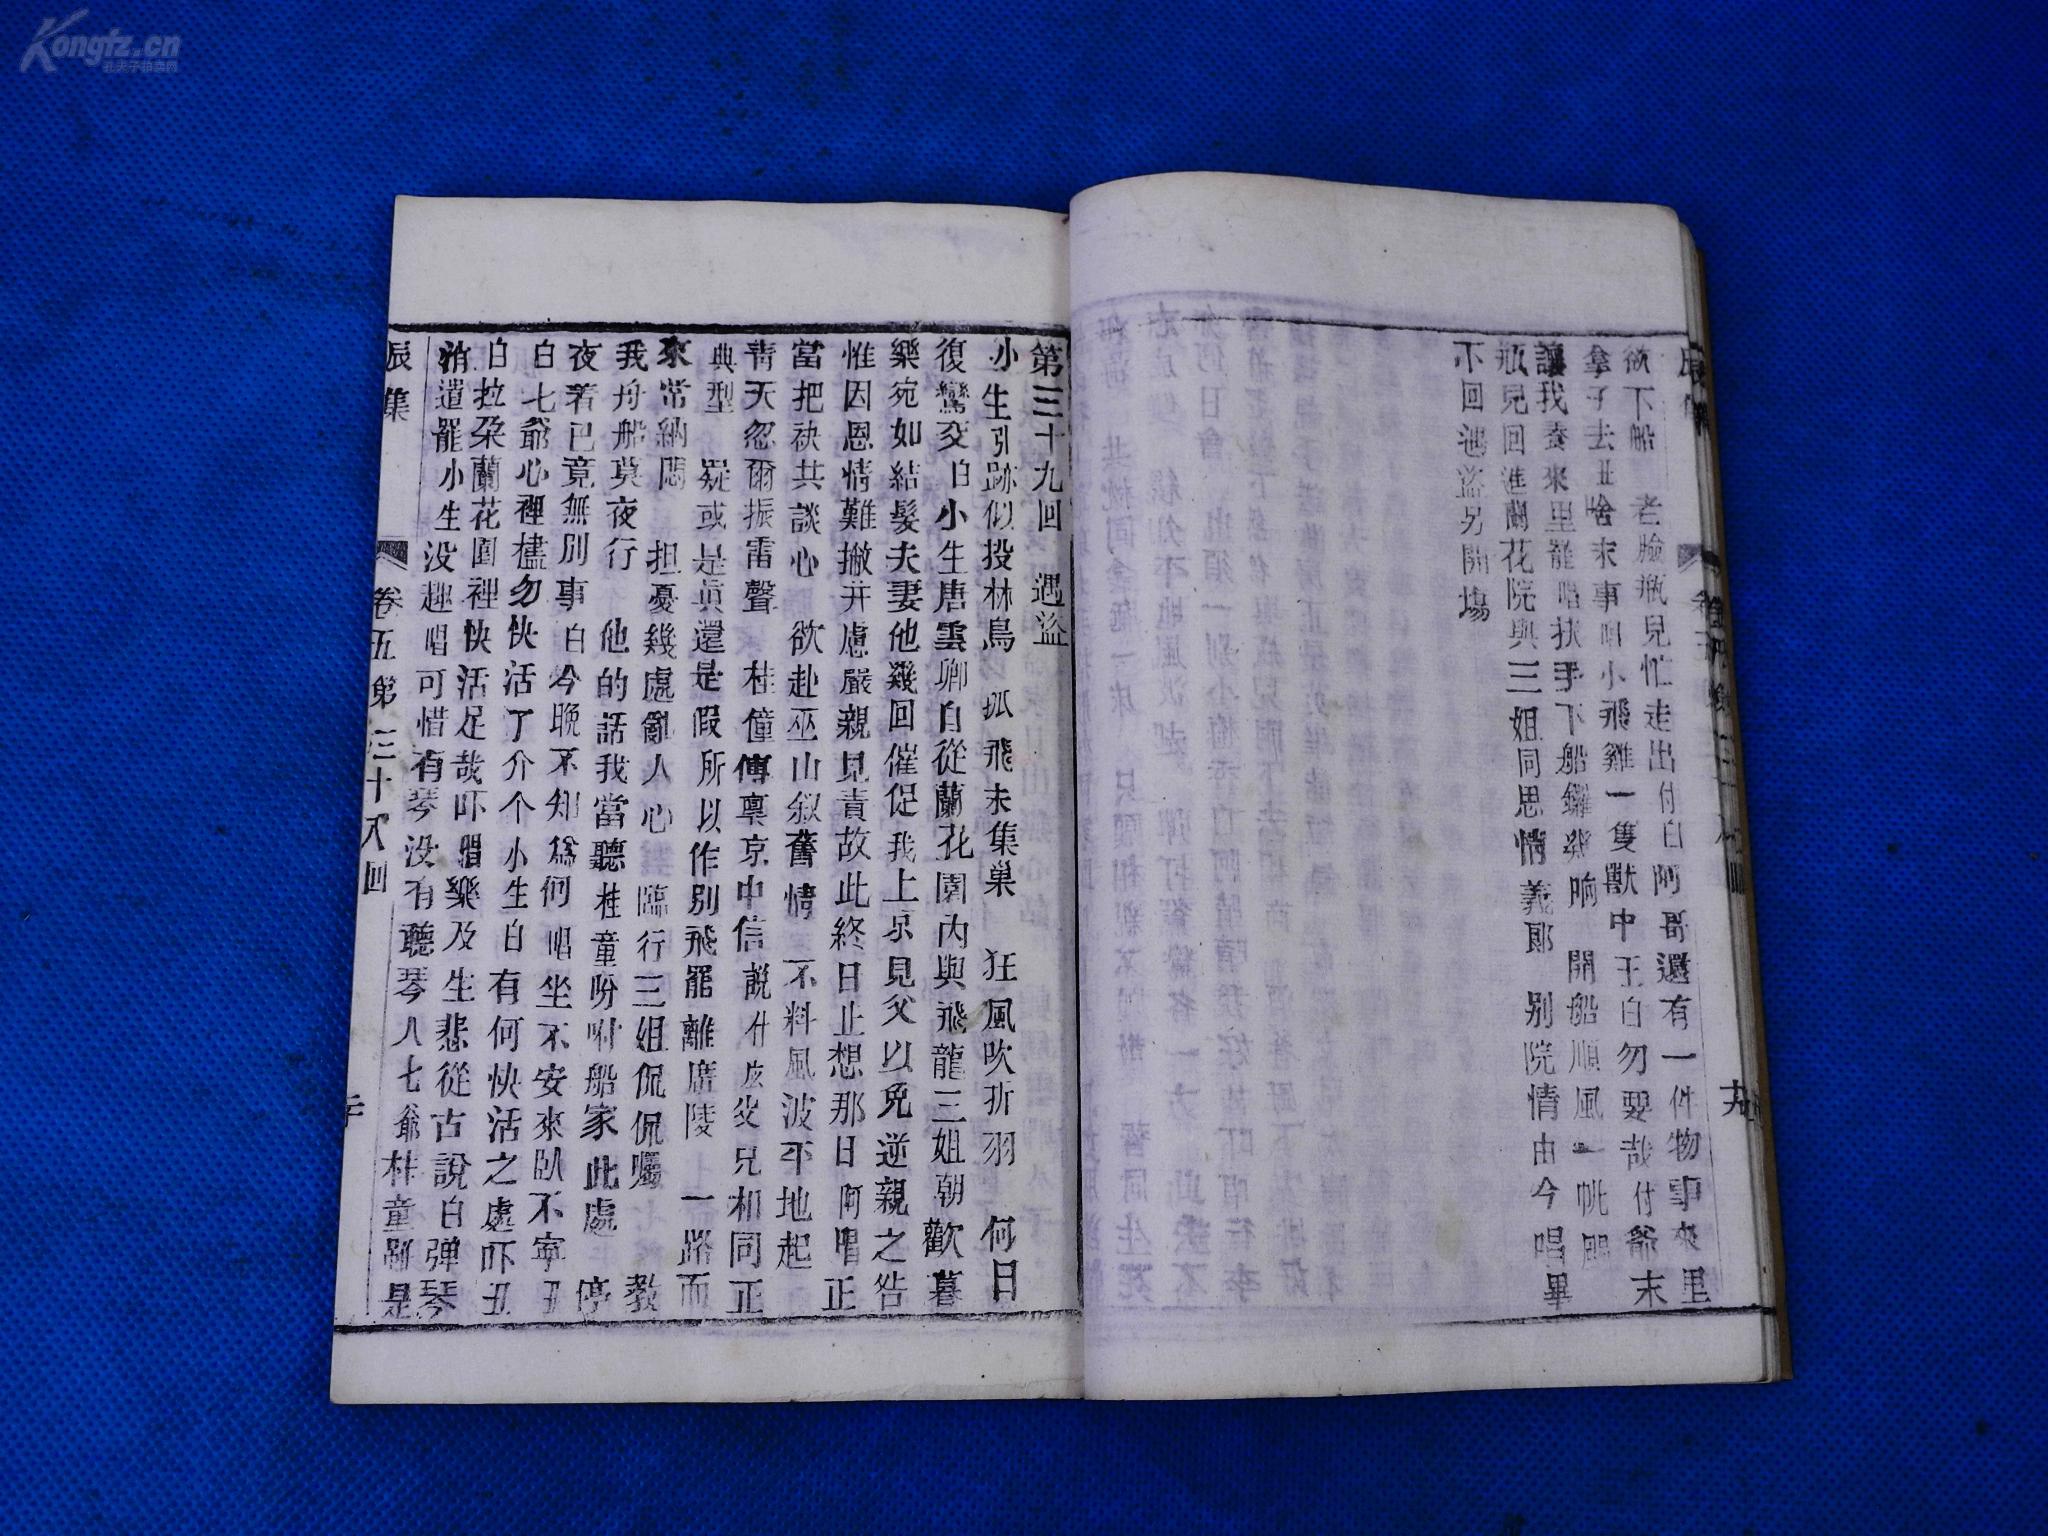 Kongfz.cn
孔夫子拍卖网
欲下船　老臉瓶兒忙走出付白阿哥還有一件物事來里
拿子去丑啥末事唱小飛雞一隻獸中王白勿要哉付爺末
讓我養來里罷唱扶手下船鑼响　開船順風一帆
瓶兒回進蘭花院與三姐同思情義郎　別院情由今唱畢
下回遇盜另開場
十九
第三十九回　遇盜
小生引跡似投林鳥　孤飛未集巢　狂風吹折羽　何日
復鸞交白小生唐雲卿自從蘭花園內與飛龍三姐朝歡暮
樂宛如結髮夫妻他幾回催促我上京見父以免逆親之咎
惟因恩情難撇并慮嚴親見責故此終日止想那日啊唱正
當把袂共談心　欲赴巫山叙舊情　不料風波平地起
青天忽爾振雷聲　桂僮傳稟京中信說什庅父兄相同正
典型　疑或是眞還是假所以作別飛罷離廣陵　一路而
來常納悶　担憂幾處亂人心臨行三姐侃侃囑　教
我舟船莫夜行　他的話我當聽桂童吩咐船家此處　停
夜着已竟無別事白今晚不知爲何唱坐不安來臥不寧丑
白七爺心裡儘勿快活了介个小生白有何快活之處吓丑
白拉朶蘭花園裡快活足哉吓唱樂及生悲從古說白弹琴
消遣罷小生没趣唱可惜有琴没有聽琴人七爺桂童是
辰集　卷五第三十八回　二十